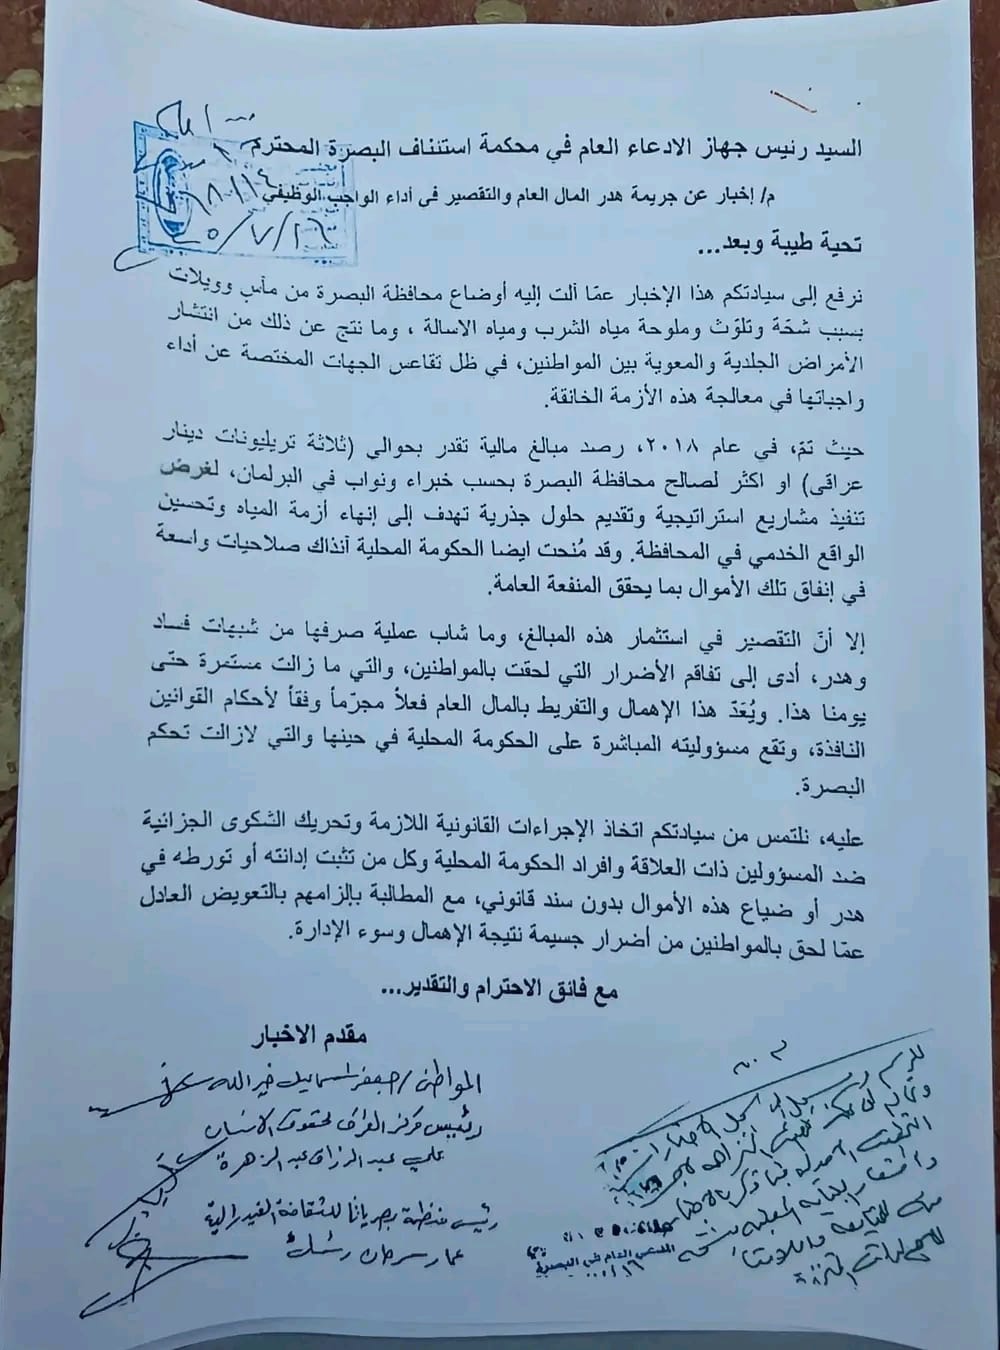 السيد رئيس جهاز الادعاء العام في محكمة استئناف البصرة المحترم
م/ إخبار عن جريمة هدر المال العام والتقصير في أداء الواجب الوظيفي
٢٠٢٥/٧/١٦
تحية طيبة وبعد...
نرفع إلى سيادتكم هذا الإخبار عمّا آلت إليه أوضاع محافظة البصرة من مآسٍ وويلات
بسبب شحّة وتلوّث وملوحة مياه الشرب ومياه الاسالة ، وما نتج عن ذلك من انتشار
الأمراض الجلدية والمعوية بين المواطنين، في ظل تقاعس الجهات المختصة عن أداء
واجباتها في معالجة هذه الأزمة الخانقة.
حيث تمّ، في عام ٢٠١٨، رصد مبالغ مالية تقدر بحوالي (ثلاثة تريليونات دينار
عراقي) او اكثر لصالح محافظة البصرة بحسب خبراء ونواب في البرلمان، لغرض
تنفيذ مشاريع استراتيجية وتقديم حلول جذرية تهدف إلى إنهاء أزمة المياه وتحسين
الواقع الخدمي في المحافظة. وقد مُنحت ايضا الحكومة المحلية آنذاك صلاحيات واسعة
في إنفاق تلك الأموال بما يحقق المنفعة العامة.
إلا أنّ التقصير في استثمار هذه المبالغ، وما شاب عملية صرفها من شبهات فساد
وهدر، أدى إلى تفاقم الأضرار التي لحقت بالمواطنين، والتي ما زالت مستمرة حتّى
يومنا هذا. ويُعدّ هذا الإهمال والتفريط بالمال العام فعلاً مجرّماً وفقاً لأحكام القوانين
النافذة، وتقع مسؤوليته المباشرة على الحكومة المحلية في حينها والتي لازالت تحكم
البصرة.
عليه، نلتمس من سيادتكم اتخاذ الإجراءات القانونية اللازمة وتحريك الشكوى الجزائية
ضد المسؤولين ذات العلاقة وافراد الحكومة المحلية وكل من تثبت إدانته أو تورطه في
هدر أو ضياع هذه الأموال بدون سند قانوني، مع المطالبة بإلزامهم بالتعويض العادل
عمّا لحق بالمواطنين من أضرار جسيمة نتيجة الإهمال وسوء الإدارة.
مع فائق الاحترام والتقدير...
مقدم الاخبار
المواطن / جعفر اسماعيل خير الله
رئيس مركز العراق لحقوق الانسان
علي عبد الرزاق عبد الزهرة
رئيس منظمة بصرياثا للثقافة الفيدرالية
عمار سرحان
المدعي العام في البصرة